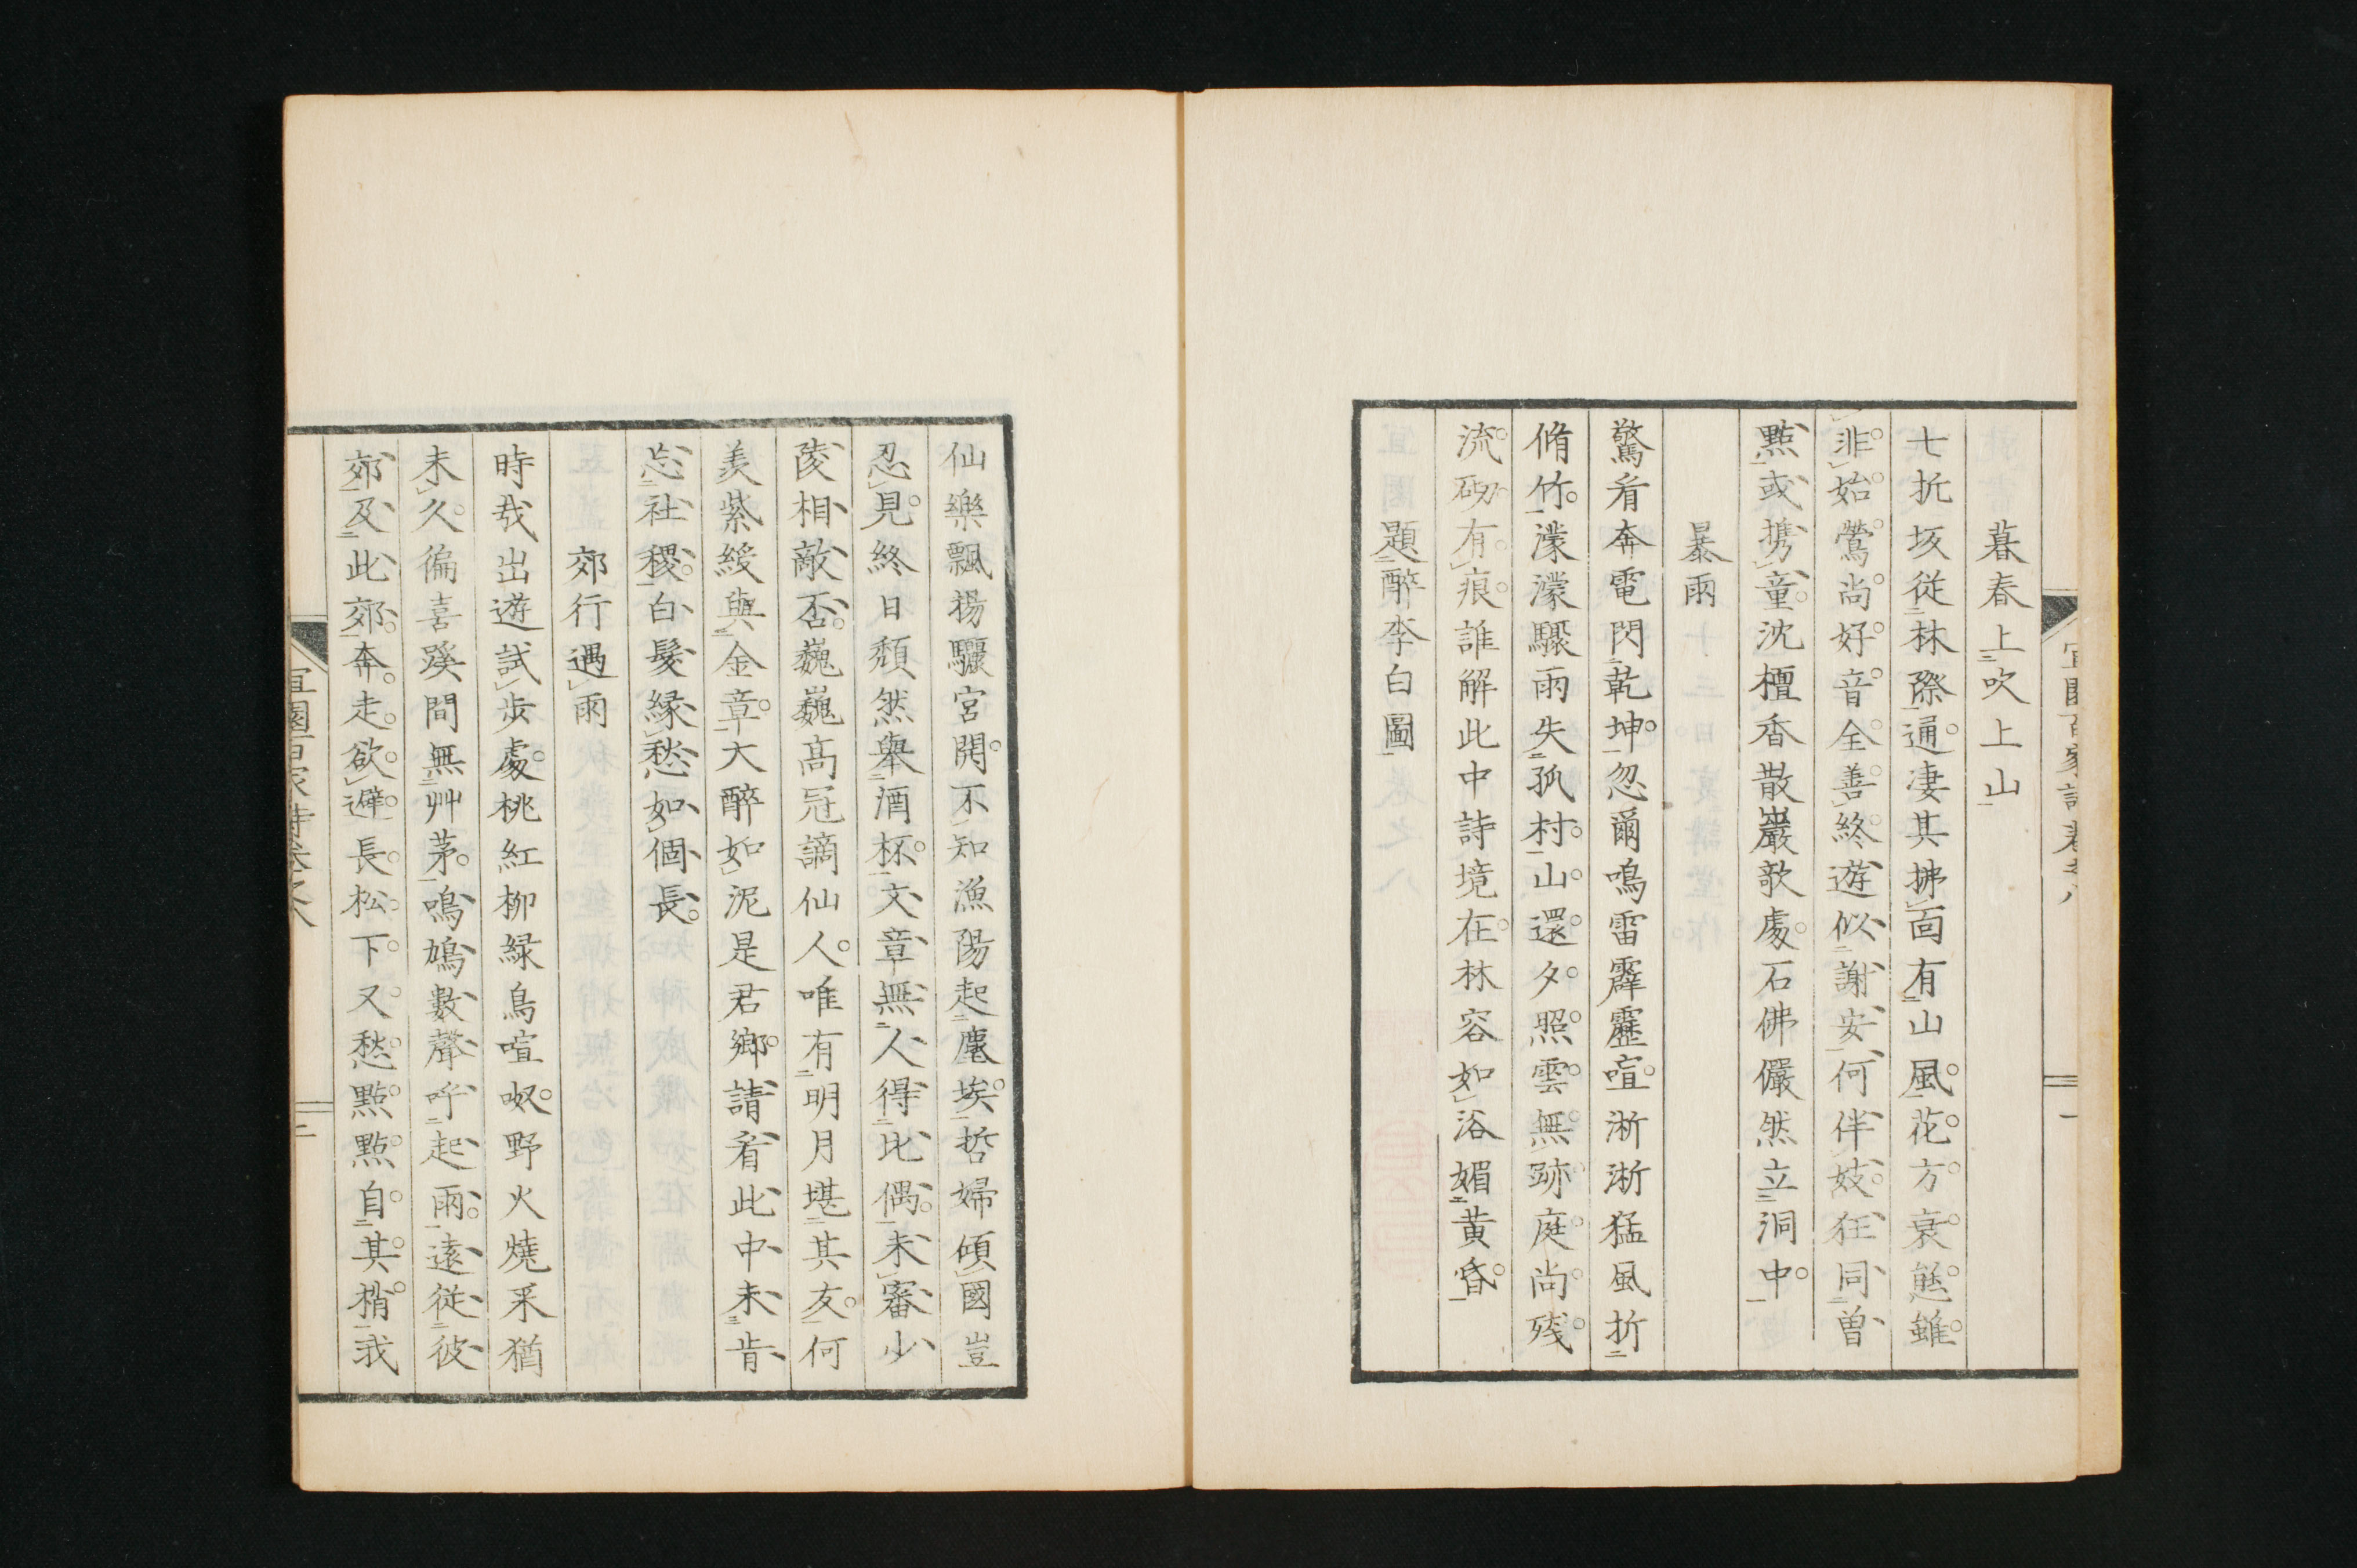 宜園百家詩卷之八 一
暮春上吹上山
七折坂從林際通凄其拂面有山風花方衰甚雖
非始鶯尚好音全善終遊似謝安何伴妓狂同曽
㸃或携童沈檀香散巖歌處石佛儼然立洞中
暴雨
驚看奔電閃乾坤忽爾鳴雷霹靂喧淅淅猛風折
脩竹濛濛驟雨失孤村山還夕照雲無跡庭尚殘
流砌有痕誰解此中詩境在林容如浴媚黄昏
題醉李白圖
仙樂飄揚驪宮開不知漁陽起塵埃哲婦傾國豈
忍見終日頽然舉酒杯文章無人得比偶未審少
陵相敵否巍巍高冠謫仙人唯有明月堪其友何
羨紫綬與金章大醉如泥是君鄉請看此中未肯
忘社稷白髮縁愁如個長
郊行遇雨
時哉出遊試歩處桃紅柳緑鳥喧呶野火燒釆猶
未久徧喜蹊間無艸茅鳴鳩數聲呼起雨遠從彼
郊及此郊奔走欲避長松下又愁㸃㸃自其梢我
宜園百家詩卷之八 二